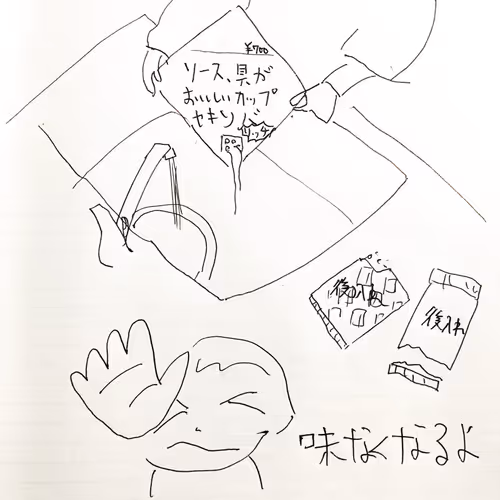 ¥700
ソース、具が
おいしいカップ
ヤキソバ
リッチ
後入れ
後入れ
味なくなるよ